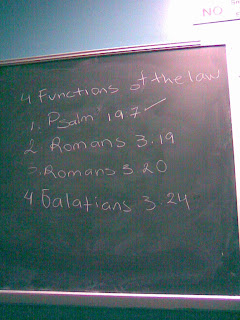 NO
4 Functions of the law
1. Psalm 19.7 ✓
2 Romans 3.19
3. Romans 3.20
4 Galatians 3.24